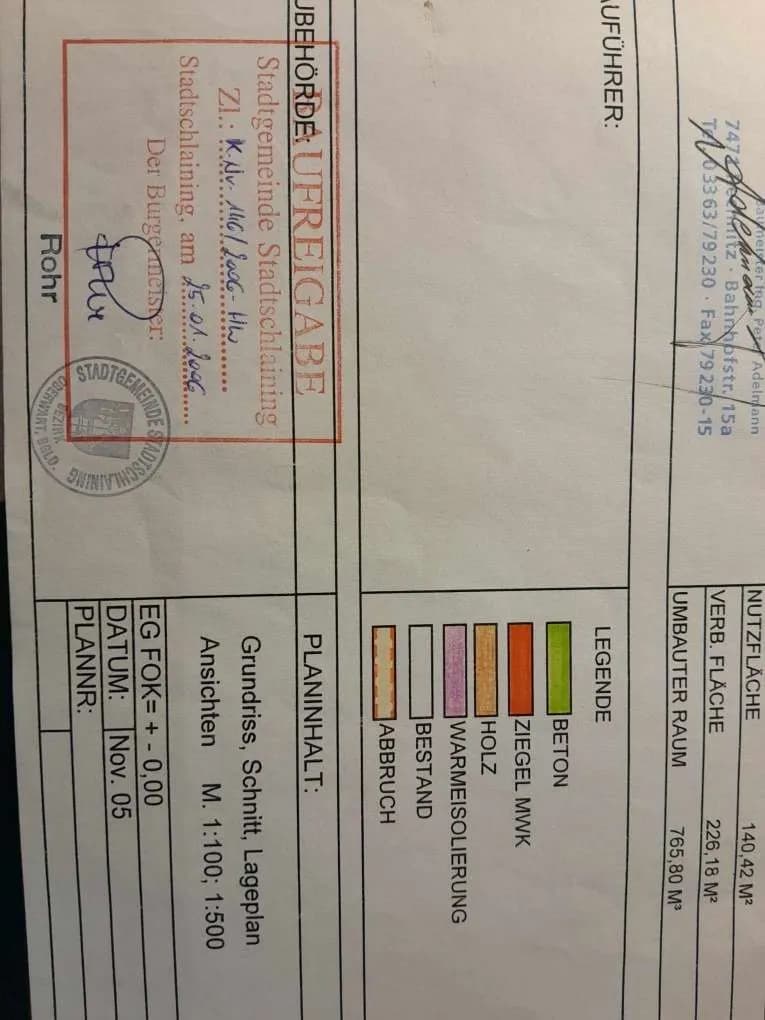 Adelmann
Bahnhofstr. 15a
03363/79230 · Fax 79230-15
NUTZFLÄCHE 140,42 M²
VERB. FLÄCHE 226,18 M²
UMBAUTER RAUM 765,80 M³
AUFÜHRER:
LEGENDE
BETON
ZIEGEL MWK
HOLZ
WÄRMEISOLIERUNG
BESTAND
ABBRUCH
UBEHÖRDE:
BAUFREIGABE
Stadtgemeinde Stadtschlaining
Zl.: K.Nv. 146/2006-HW
Stadtschlaining, am 25.01.2006
Der Bürgermeister:
Rohr
STADTGEMEINDE STADTSCHLAINING
BEZIRK
OBERWART, BGLD.
PLANINHALT:
Grundriss, Schnitt, Lageplan
Ansichten M. 1:100; 1:500
EG FOK= + - 0,00
DATUM: Nov. 05
PLANNR: